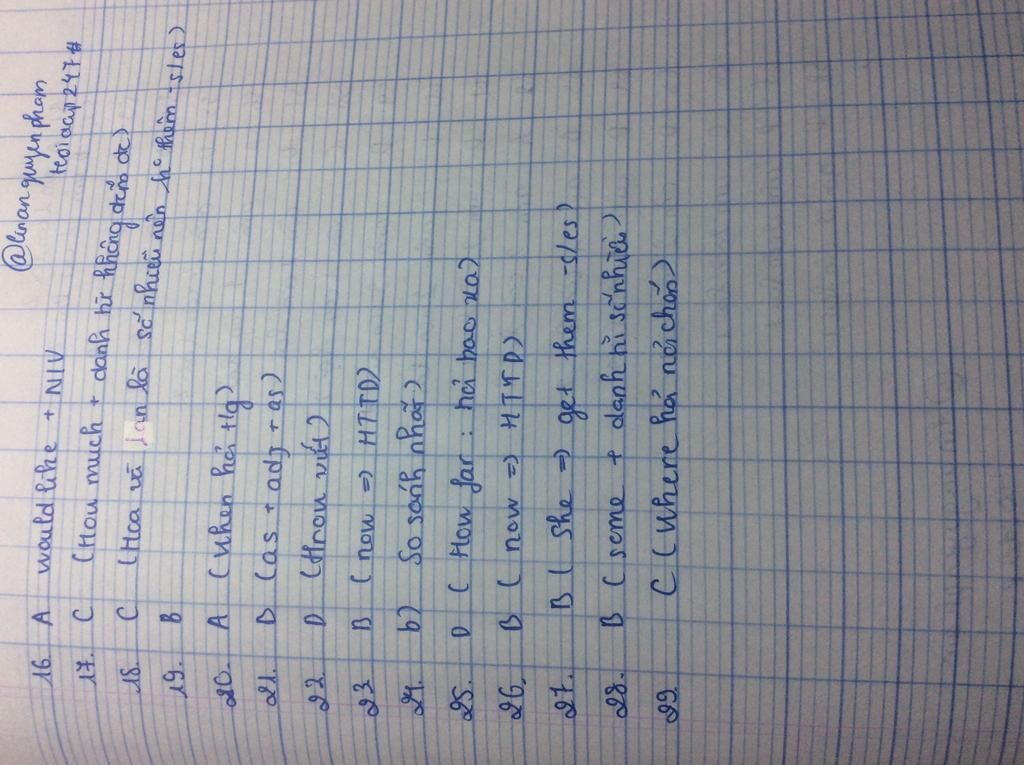 @linanquyenpham
Hoidap247#
16. A would like + N/V
17. C (How much + danh từ không đếm đc)
18. C (Hoa và Lan là số nhiều nên ko thêm -s/es)
19. B
20. A (When hỏi tg)
21. B (as + adj + as)
22. D
23 B (now => HTTD)
24. b) So sánh nhất)
25. D (How far: hỏi bao xa)
26. B (now => HTTD)
27. B (She => get them -s/es)
28. B (some + danh từ số nhiều)
29 C (Where hỏi nơi chốn)